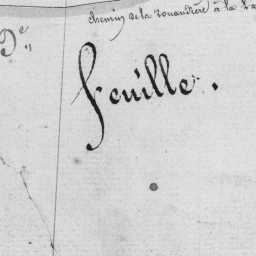 Chemin de la Touandière à la
De
feuille.